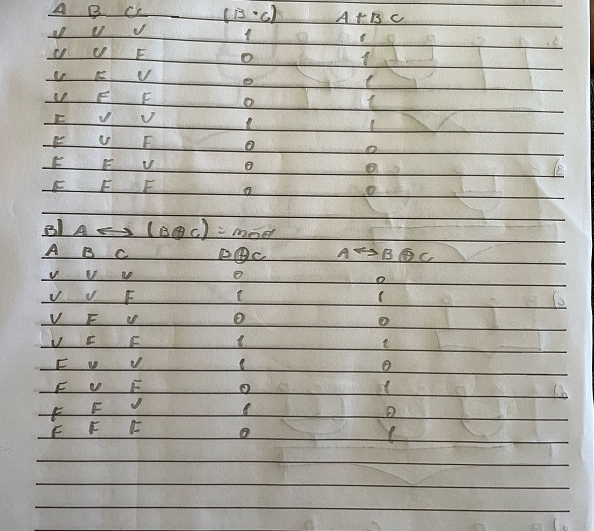 A B C (B·C) A+BC
V V V 1 1
V V F 0 1
V F V 0 1
V F F 0 1
F V V 1 1
F V F 0 0
F F V 0 0
F F F 0 0
B) A ↔ (B⊕C) =
A B C B⊕C A↔B⊕C
V V V 0 0
V V F 1 1
V F V 0 0
V F F 1 1
F V V 1 0
F V F 0 1
F F V 1 0
F F F 0 1